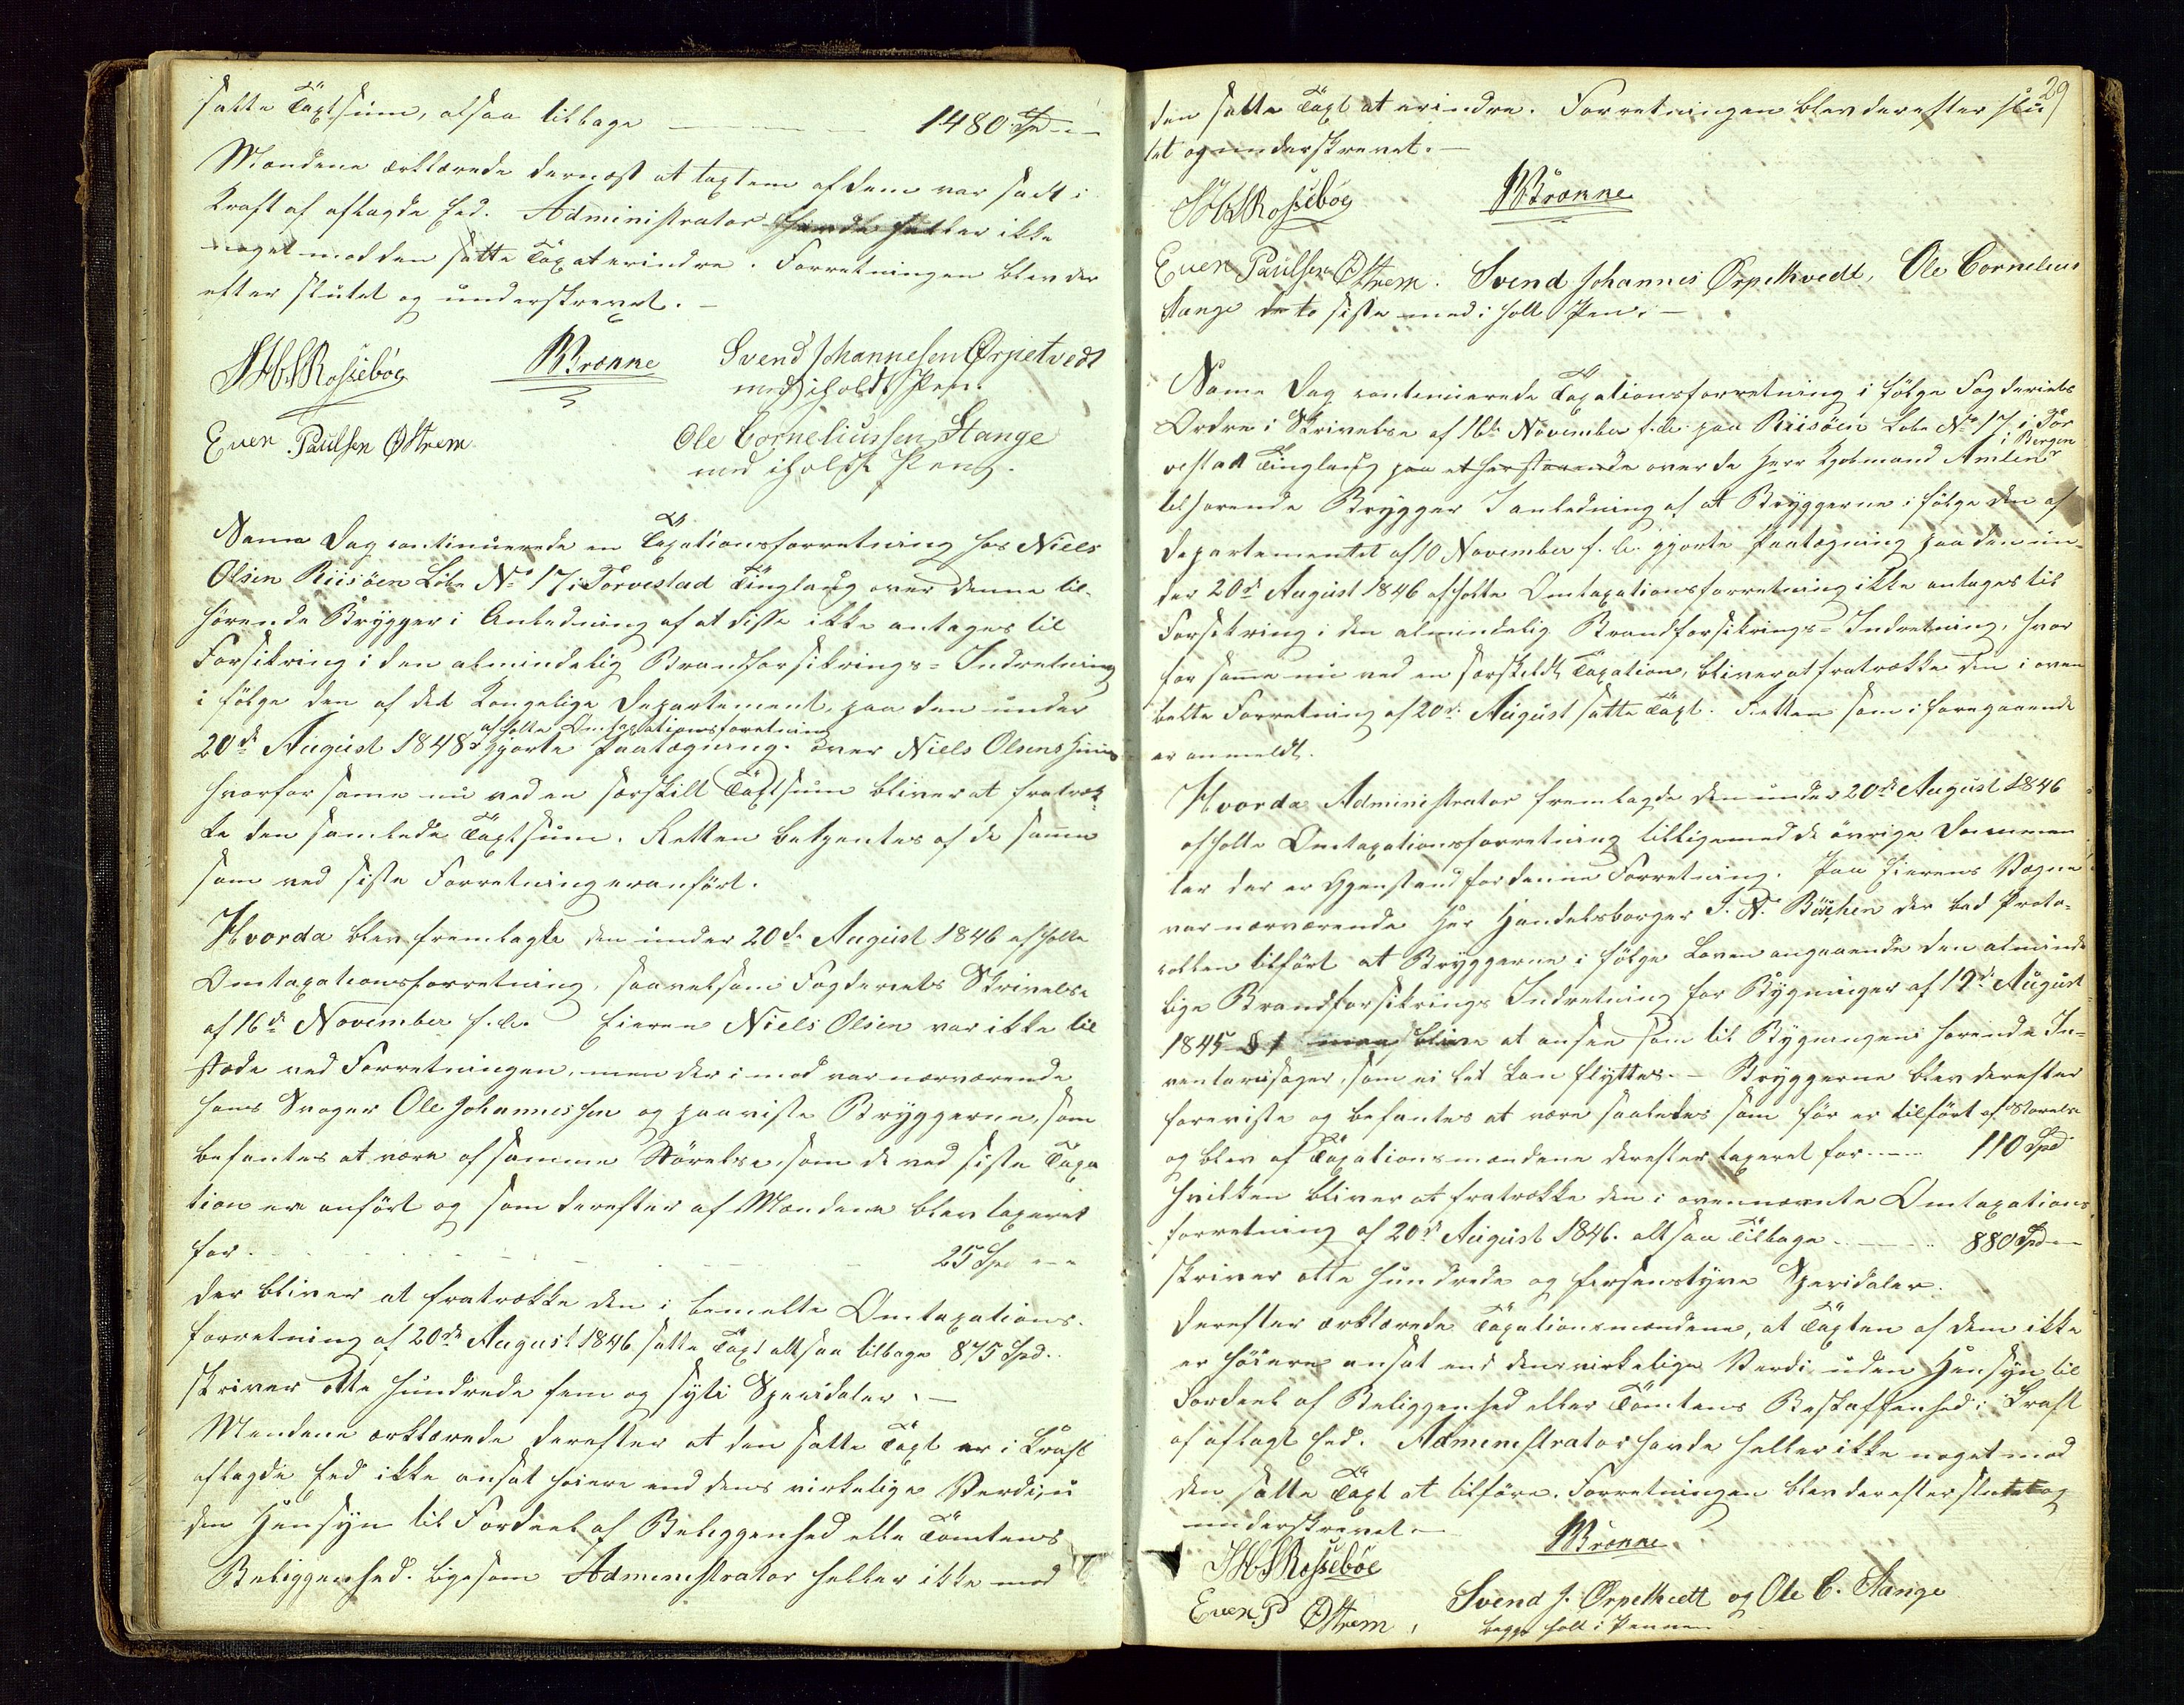 satte Taxtsum, altsaa tilbage — — — — 1480 Spd — —
Mændene erklærede dernæst at taxten af dem var sadt i
Kraft af aflagde Eed. Administrator havde heller ikke
noget mod den satte Taxt at erindre. Forretningen blev der
efter sluttet og underskrevet. —
JHSRossebøe WBrønne Svend Johannesen Ørpetvedt
med iholdt Pen.
Even Paulsen Østrem Ole Corneliussen Stange
med iholdt Pen.
Samme Dag continuerede en Taxationsforretning hos Niels
Olsen Riisøen Løbe No 17 i Torvestad Tinglaug over denne til-
hørende Brygger i Anledning af at disse ikke antages til
Forsikring i den almindelig Brandforsikrings-Indretning
i følge den af det Kongelige Departement, paa den under
afholte Omtaxationsforetning
20de August 1848 gjorte Paategning. over Niels Olsens Huus
hvorfor samme nu ved en særskilt Taxtsum bliver at fratræk-
ke den samlede Taxtsum. Retten betjentes af de samme
som ved siste Forretning er anført.
Hvorda blev fremlagte den under 20de August 1846 afholte
Omtaxationsforretning, saavelsom Fogderiets Skrivelse
af 16de November f. A. Eieren Niels Olsen var ikke til
stæde ved Forretningen, men der i mod var nærværende
hans Svoger Ole Johannessen og paaviste Bryggerne, som
befantes at være af samme Størelse, som de ved siste Taxa
tion er anført og som derefter af Mændene blev taxeret
for — — — — 25 Spd — —
der bliver at fratrække den i bemelte Omtaxations-
forretning af 20de August 1846 satte Taxt altsaa tilbage 875 Spd.
skriver otte hundrede fem og sytti Speisidaler. —
Mændene erklærede derefter at den satte Taxt er i Kraft
aflagde Eed ikke ansat høiere end dens virkelige Verdi, u
den Hensyn til Fordeel af Beliggenhed elle Tomtens
Beliggenhed. ligesom Administrator heller ikke mod
29
den satte Taxt at erindre. Forretningen blev derefter slut
tet og underskrevet. —
JHSRossebøe WBrønne
Even Paulsen Østrem. Svend Johannes Ørpethvedt, Ole Cornelius
Stange de to siste med i holt Pen. —
Samme Dag continuerede Taxationsforretning i følge Fogderiets
Ordre i Skrivelse af 16de November f. A. paa Riisøen Løbe No 17 i Tor
i Bergen
vestad Tinglaug paa et herstaaende over de Herr Kjøbmand Amlien
tilhørende Brygger I anledning af at Bryggerne i følge den af
Departementet af 10 November f. A. gjorte Paategning paa den un-
der 20de August 1846 afholte Omtaxationsforretning ikke antages til
Forsikring i den almindelig Brandforsikrings-Indretning, hvor
for samme nu ved en særskildt Taxation, bliver at fratrække den i oven
belte Forretning af 20de August satte Taxt. Retten som i foregaaende
er anmeldt.
Hvorda Administrator fremlagde den under 20de August 1846
afholte Omtaxationsforretning tilligemed de øvrige Documen
ter der er Gjenstand for denne Forretning. Paa Eierens Vegne
var nærværende Hr Handelsborger S. N. Büchen der bad Proto-
collen tilført at Bryggerne i følge Loven angaaende den alminde
lige Brandforsikrings Indretning for Bygninger af 19de August
1845 § 1 maa blive at ansee som til Bygningen hørende In-
ventariisager, som ei let kan flyttes. — Bryggerne blev derefter
foreviste og befantes at være saaledes som før er tilført af Størelse
og blev af Taxationsmændene derefter taxeret for — — 110 Spd
hvilken bliver at fratrække den i ovennævnte Omtaxations
forretning af 20de August 1846. altsaa Tilbage — — — 880 Spd —
skriver otte hundrede og firsenstyve Speisidaler.
Derefter erklærede Taxationsmændene, at Taxten af dem ikke
er høiere ansat end dens virkelige Verdi uden Hensyn til
Fordeel af Beliggenhed eller Tomtens Beskaffenhed i Kraft
af aflagt Eed. Administrator havde heller ikke noget mod
den satte Taxt at tilføre. Forretningen blev derefter sluttet og
underskrevet. —
WBrønne
JHSRossebøe
Even P Østrem, Svend J. Ørpethvedt og Ole C. Stange
begge holt i Pennen